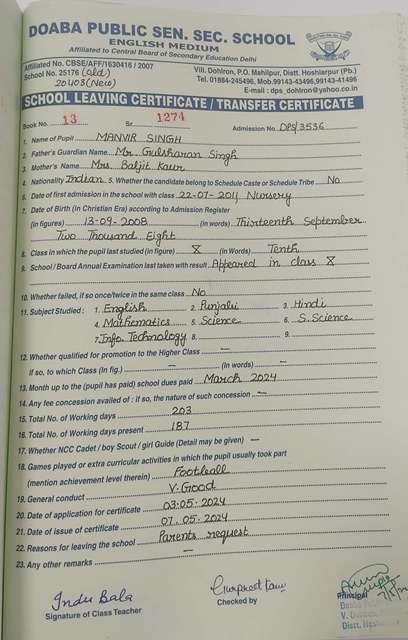 DOABA PUBLIC SEN. SEC. SCHOOL
ENGLISH MEDIUM
Affiliated to Central Board of Secondary Education Delhi
Affiliated No. CBSE/AFF/1630416 / 2007
School No. 25176 (old)
20403 (New)
Vill. Dohlron, P.O. Mahilpur, Distt. Hoshiarpur (Pb.)
Tel. 01884-245496, Mob.99143-43496,99143-41496
E-mail : dps_dohlron@yahoo.co.in
SCHOOL LEAVING CERTIFICATE / TRANSFER CERTIFICATE
Book No. 13 Sr. 1274 Admission No. DPS/3536
1. Name of Pupil MANVIR SINGH
2. Father's Guardian Name Mr. Gulsharan Singh
3. Mother's Name Mrs. Baljit Kaur
4. Nationality Indian 5. Whether the candidate belong to Schedule Caste or Schedule Tribe No
6. Date of first admission in the school with class 22-07-2011, Nursery
7. Date of Birth (in Christian Era) according to Admission Register
(in figures) 13-09-2008 (in words) Thirteenth September
Two Thousand Eight
8. Class in which the pupil last studied (in figure) X (in Words) Tenth
9. School / Board Annual Examination last taken with result Appeared in class X
10. Whether failed, if so once/twice in the same class No
11. Subject Studied : 1. English 2. Punjabi 3. Hindi
4. Mathematics 5. Science 6. S.Science
7. Info. Technology 8. 9.
12. Whether qualified for promotion to the Higher Class —
If so, to which Class (In fig.) — (In words) —
13. Month up to the (pupil has paid) school dues paid March 2024
14. Any fee concession availed of : if so, the nature of such concession —
15. Total No. of Working days 203
16. Total No. of Working days present 187
17. Whether NCC Cadet / boy Scout / girl Guide (Detail may be given) —
18. Games played or extra curricular activities in which the pupil usually took part
(mention achievement level therein) Football
19. General conduct V. Good
20. Date of application for certificate 03.05.2024
21. Date of issue of certificate 07.05.2024
22. Reasons of leaving the school Parents request
23. Any other remarks —
Indu Bala
Signature of Class Teacher
Gurpreet Kaur
Checked by
Principal